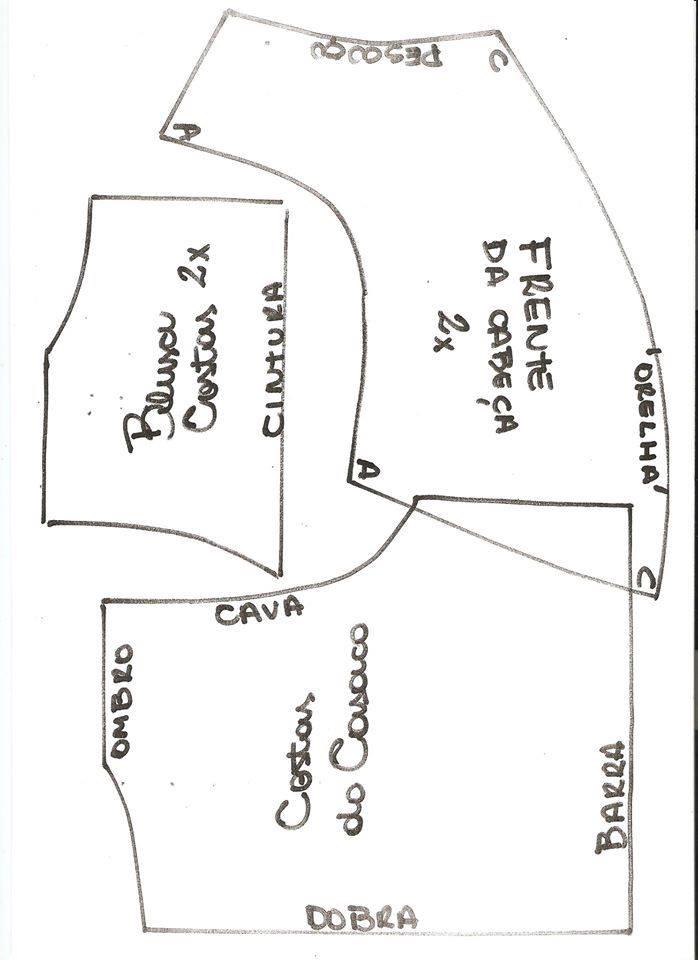 PESCOÇO
C
A
FRENTE
DA CABEÇA
2x
ORELHA
A
C
Blusa
Costas 2x
CINTURA
CAVA
OMBRO
Costas
do Casaco
BARRA
DOBRA